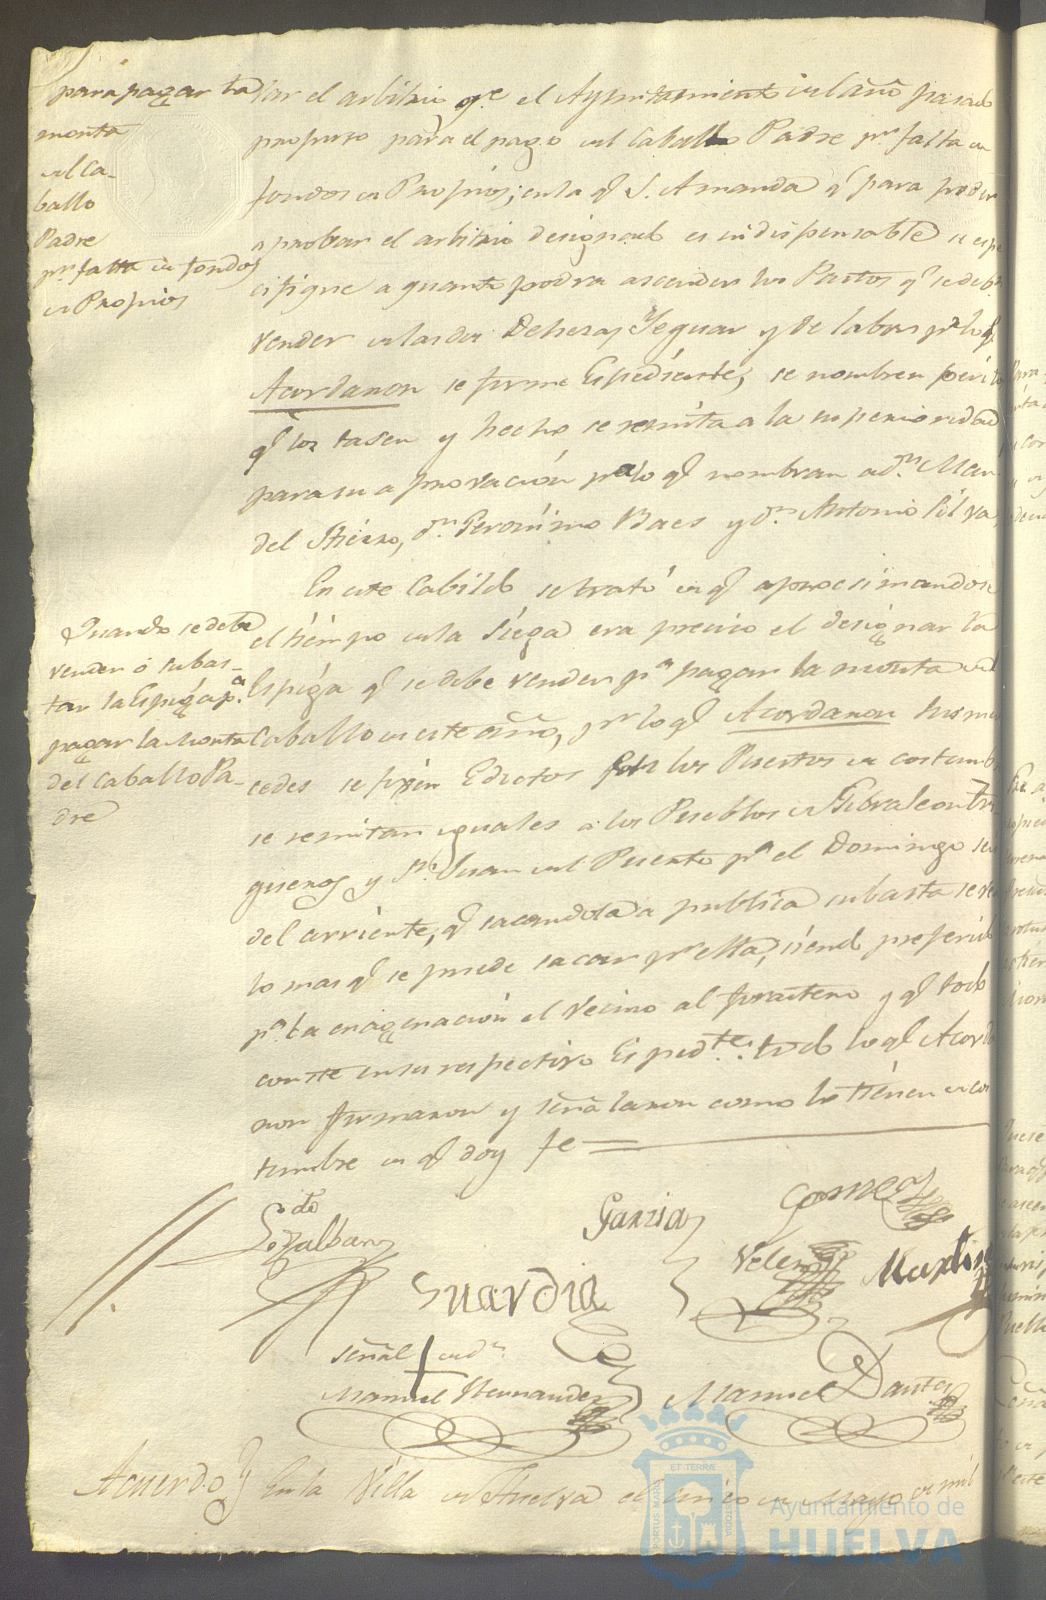 para pagar la
monta
del Ca-
ballo
Padre
pr. falta de fondos
de Propios
tar el arbitrio qe el Ayuntamiento del año pasado
propuso para el pago del Caballo Padre pr. falta de
fondos de Propios, en la q S. Amanda q para poder
aprobar el arbitrio designado es indispensable se espe
cifique a quanto podra ascender los Pastos q se debe
vender de las dos Dehesas Yeguar y de labor pr lo q
Acordaron se forme Espediente, se nombren perito
q los tasen y hecho se remita a la superioridad
para su aprovación pa lo q nombran a Dn Man
del Hierro, Dn Geronimo Baes y Dn Antonio Silva
Quando se debe
vender ó subas-
tar la Espiga pa
pagar la Monta
del caballo Pa-
dre
En este Cabildo se trató de q aprocsimandose
el tiempo de la Siega era preciso el designar la
Espiga q se debe vender pa pagar la monta del
Caballo de este año, pr lo q Acordaron sus mer
cedes se fijen Edictos en los Puestos de costumb
se remitan yguales a los Pueblos de Gibraleon Tri
gueros y Sn Juan del Puerto pa el Domingo
del corriente, q sacandola a publica subasta se
lo mas q se puede sacar pr ella, siendo preferido
pa la enagenación el Vecino al forastero y q todo
conste en su respectivo Espedte: todo lo q Acorda
ron firmaron y señalaron como lo tienen de cos
tumbre de q doy fe
Garzia
Gomez
Guardia
Velez
Martin
señal de Dn
Manuel Hernandez
Manuel Dante
Acuerdo
En la Villa de Huelva el cinco de Mayo de mil
ET TERRÆ
PORTUS MARIS
CUSTODIA
Ayuntamiento de
HUELVA